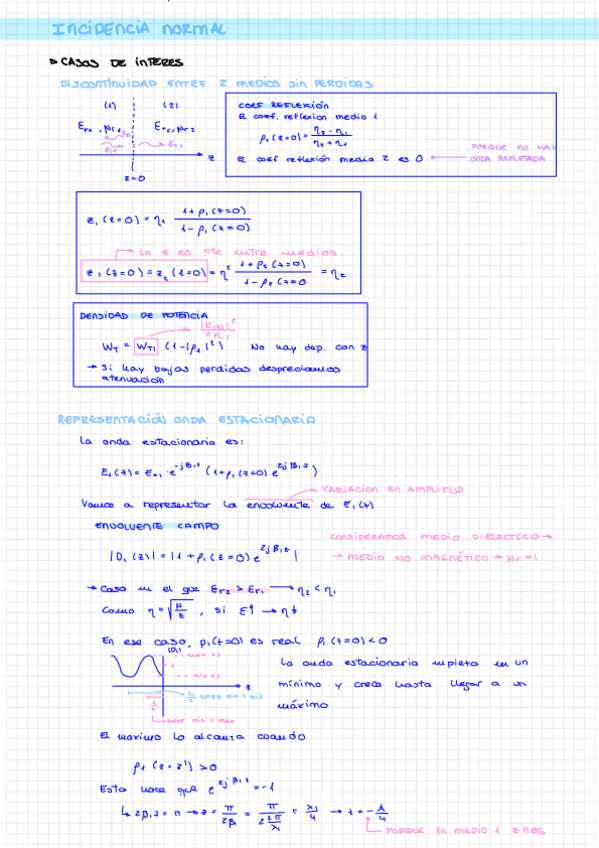 INCIDENCIA NORMAL
CASOS DE INTERES
DISCONTINUIDAD ENTRE 2 MEDIOS SIN PERDIDAS
(1) (2)
Er1, μr1 Er2, μr2
z
z=0
COEF REFLEXIÓN
El coef. reflexion medio 1
ρ1(z=0) = (η2 - η1) / (η2 + η1)
El coef reflexión medio 2 es 0
PORQUE NO HAY
ONDA REFLEJADA
z1(z=0) = η1 (1+ρ1(z=0)) / (1-ρ1(z=0))
La z es cte entre medios.
z1(z=0) = z2(z=0) = η2 (1+ρ2(z=0)) / (1-ρ2(z=0) = η2
DENSIDAD DE POTENCIA
WT = WT1 (1-|ρ1|²) No hay dep. con z
→ Si hay bajas perdidas despreciamos
atenuación
REPRESENTACIÓN ONDA ESTACIONARIA
La onda estacionaria es:
VARIACION EN AMPLITUD
Vamos a representar la envolvente de E1(z)
ENVOLVENTE CAMPO
CONSIDERAMOS MEDIO DIELECTICO →
→ MEDIO NO MAGNÉTICO → μr=1
|D1(z)| = |1 + ρ1(z=0) e^{2jβ1z}|
→ Caso en el que Er2 > Er1 → η2 < η1
Como η = √(μ/ε), si ε↑ → η↓
En ese caso, ρ1(z=0) es real ρ1(z=0)<0
La onda estacionaria empieza en un
mínimo y crece hasta llegar a un
máximo
z
ENTRE MIN Y MAX
El maximo lo alcanza cuando
ρ1(z=z')>0
Esto hace que e^{2jβ1z} = -1
↳ 2β1z = π → z = π/2β1 = π/(2 2π/λ1) = λ1/4 → z = -λ/4
PORQUE EN MEDIO 1 z NEG